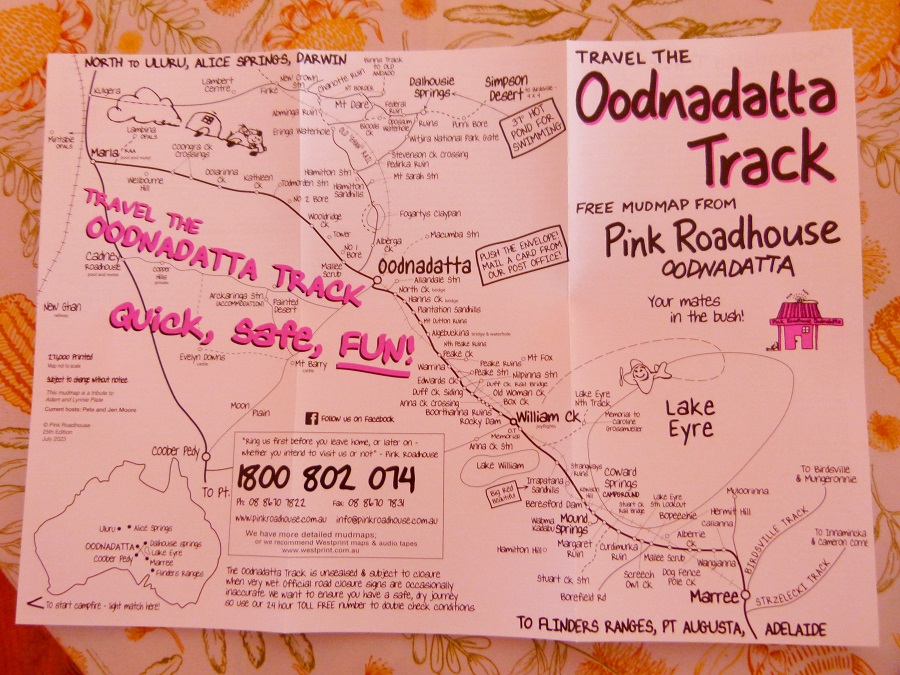 NORTH TO ULURU, ALICE SPRINGS, DARWIN
Kulgera
Lambert Centre
Finke
New Crown Stn
Charlotte Ruin
Binns Track TO OLD ANDADO
Mt Dare
Abminga Ruin
Eringa Waterhole
Bloods Ck
Federal Ruin
Opossum Waterhole
Dalhousie Springs
Ruins
Purni Bore
Simpson Desert
3T° HOT POND FOR SWIMMING
Witjira National Park Gate
OLD GHAN RLY
Stevenson Ck Crossing
Pedirka Ruin
Mt Sarah Stn
Mintabie OPALS
Lambina OPALS
Marla
Coongra Ck Crossings
Welbourne Hill
Olarinna Ck
Kathleen Ck
Todmorden Stn
Hamilton Stn
Hamilton Sandhills
No 2 Bore
Wooldridge Ck
Tower
No 1 Bore
Mallee Scrub
Fogartys Claypan
Alberga Ck
Macumba Stn
PUSH THE ENVELOPE!
MAIL A CARD FROM
OUR POST OFFICE!
TRAVEL THE
OODNADATTA TRACK
QUICK, safe, FUN!
Cadney Roadhouse
Copper Hills
New Ghan railway
Arckaringa Stn (ACCOMMODATION)
Painted Desert
Evelyn Downs
Mt Barry
Moon Plain
Coober Pedy
TO Pt.
Oodnadatta
Allandale Stn
North Ck bridge
Hanns Ck bridge
Plantation Sandhills
Mt Dutton Ruins
Algebuckina bridge & waterhole
Nth Peake Ruins
Peake Ck
Warrina
Peake Ruins
Mt Fox
Peake Stn
Nilpinna Stn
Edwards Ck
Duff Ck Rail Bridge
Duff Ck Siding
Old Woman Ck
Anna Ck Crossing
Box Ck
Boorthanna Ruins
Rocky Dam
William Ck
O.T Memorial
Anna Ck Stn
Lake William
Big Red Beautiful
Irrapatana Sandhills
Strangways Ruin
Beresford Dam
Coward Springs CAMPGROUND
Mound Springs
Wabma Kadarbu
Hamilton Hill
Margaret Ruin
Curdimurka Ruin
Stuart Ck Rail Bridge
Stuart Ck Stn
Borefield Rd
Lake Eyre Sth Lookout
Bopeechee
Hermit Hill
Callanna
Alberrie Ck
Mallee Scrub
Wangianna
Screech Owl Ck
Dog Fence
Pole Ck
Muloorinna
Marree
Lake Eyre Nth Track
Memorial to Caroline Grossmueller
Lake Eyre
TO Birdsville & Mungeronnie
BIRDSVILLE TRACK
TO Innaminka & Cameron Corne
STRZELECKI TRACK
TO FLINDERS RANGES, PT AUGUSTA, ADELAIDE
27,6000 Printed
Map not to scale
Subject to change without notice
This mudmap is a tribute to
Adam and Lynnie Plate
Current hosts; Pete and Jen Moore
© Pink Roadhouse
25th Edition
July 2023
Follow us on Facebook
"Ring us first before you leave home, or later on -
whether you intend to visit us or not" - Pink Roadhouse
1800 802 074
Ph: 08 8670 7822 Fax: 08 8670 7831
www.pinkroadhouse.com.au info@pinkroadhouse.com.au
We have more detailed mudmaps;
or we recommend Westprint maps & audio tapes
www.westprint.com.au
Uluru
Alice Springs
OODNADATTA
Dalhousie springs
Lake Eyre
Coober Pedy
Marree
Flinders Ranges
TO start campfire - light match here!
The Oodnadatta Track is unsealed & subject to closure
when very wet. Official road closure signs are occasionally
inaccurate. We want to ensure you have a safe, dry journey
so use our 24 hour TOLL FREE number to double check conditions.
TRAVEL THE
Oodnadatta
Track
FREE MUDMAP FROM
Pink Roadhouse
OODNADATTA
Your mates
in the bush!